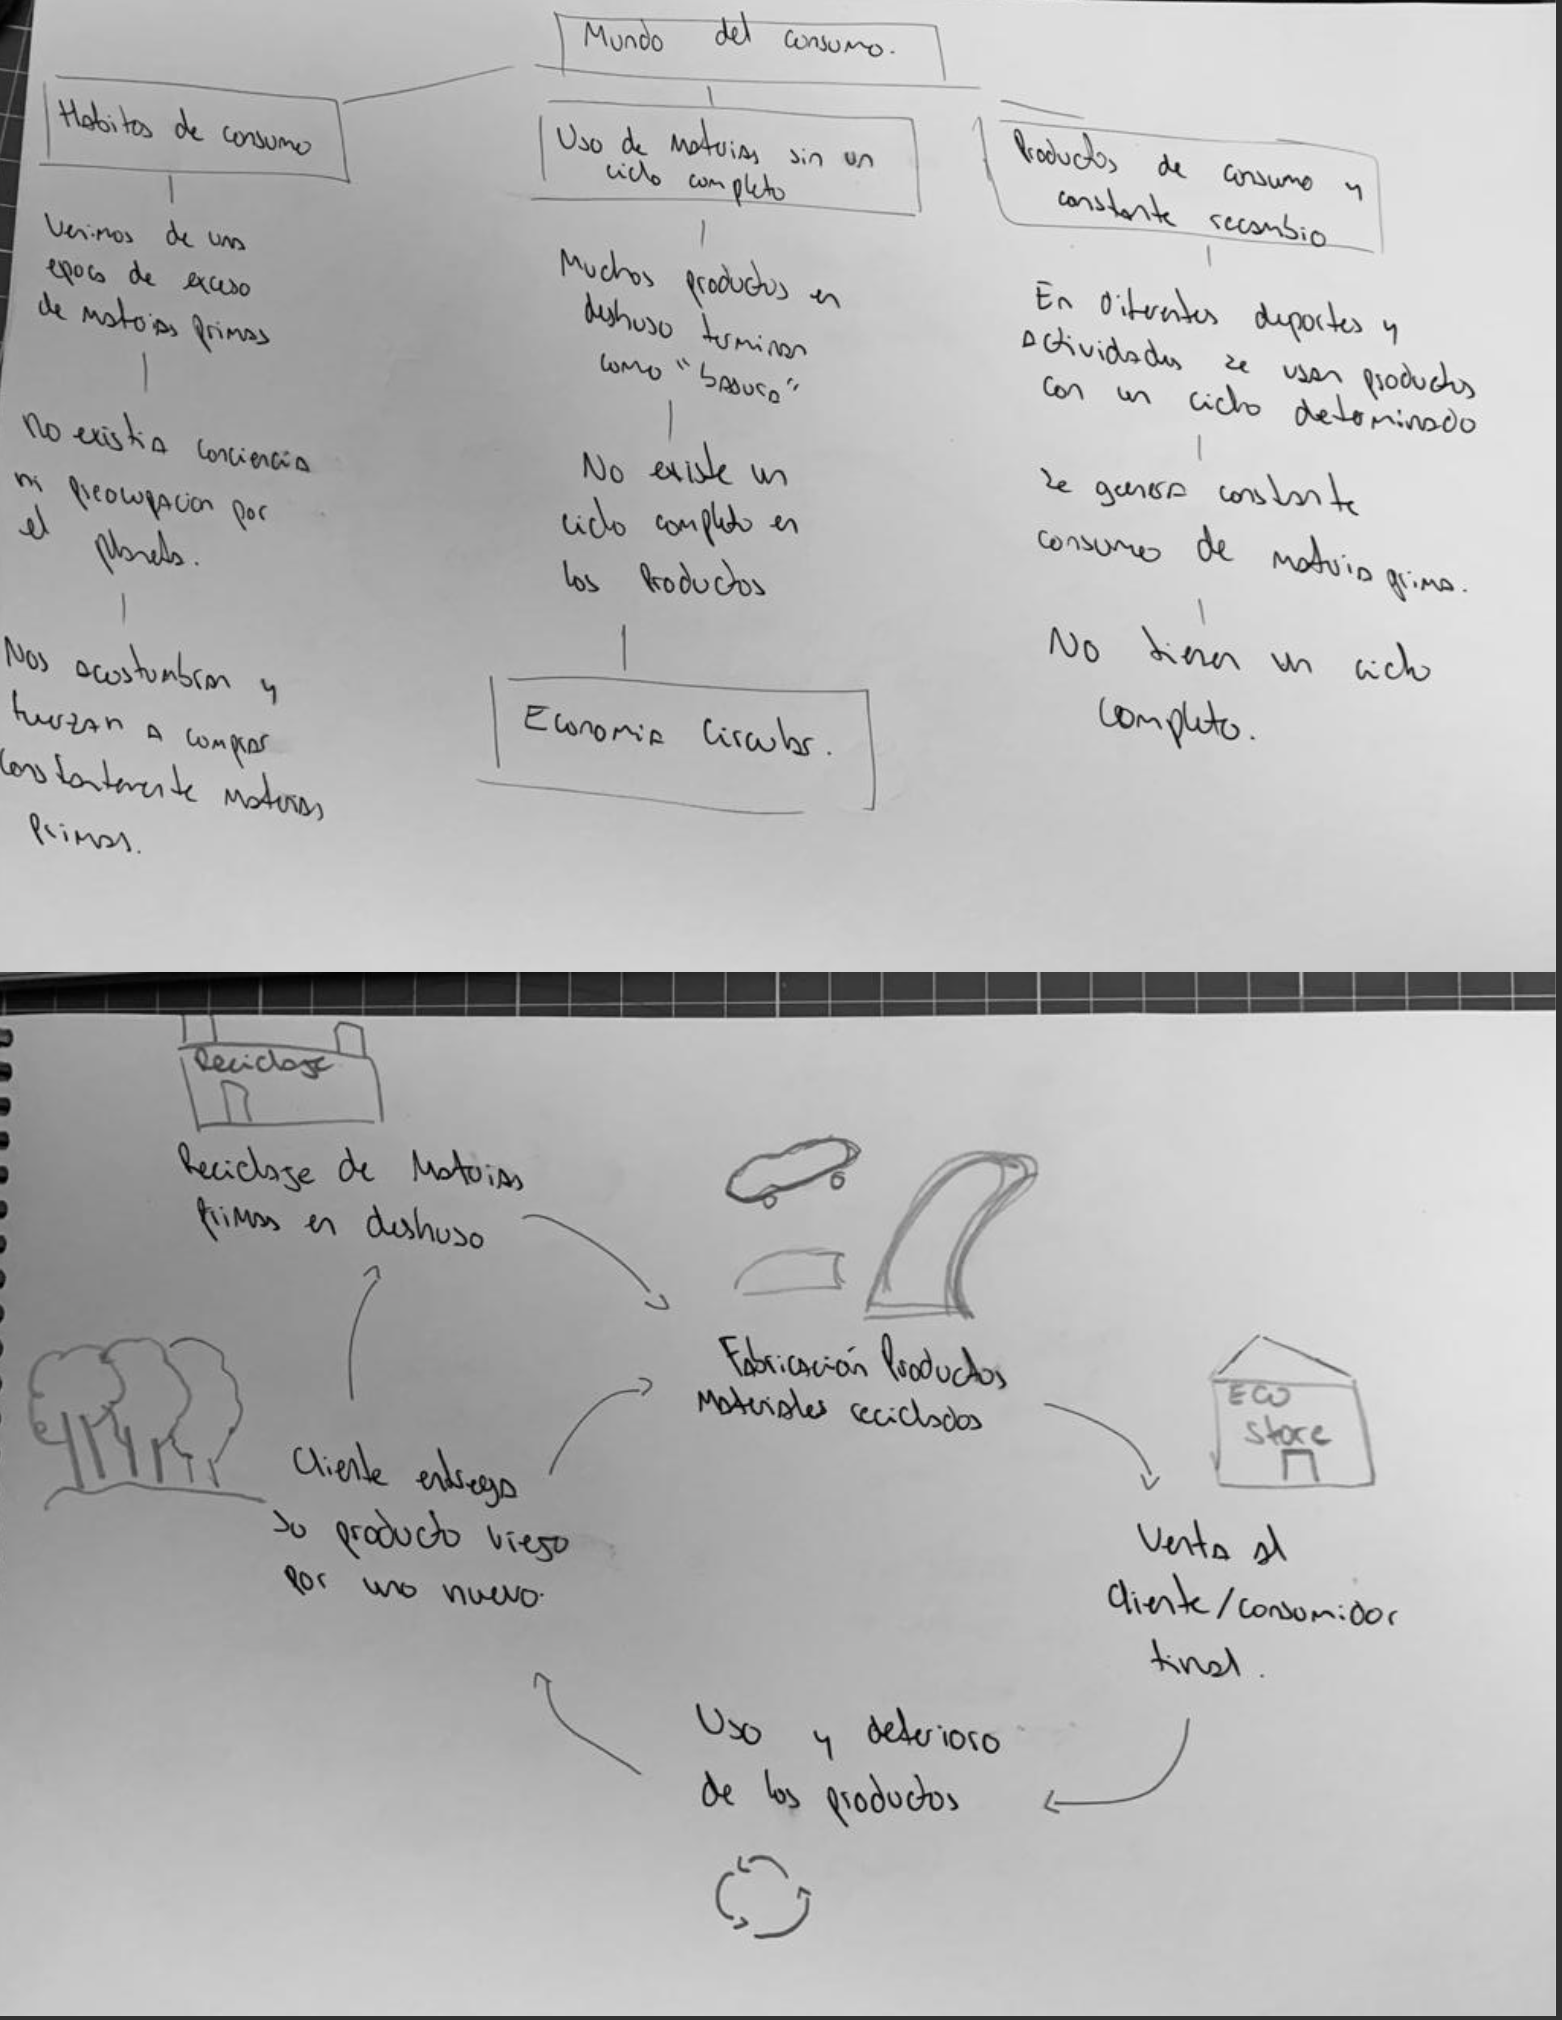 Mundo del consumo.
Habitos de consumo
Venimos de una
epoca de exceso
de materias primas
No existia conciencia
ni preocupacion por
el planeta.
Nos acostumbran y
fuerzan a comprar
constantemente materias
primas.
Uso de materias sin un
ciclo completo
Muchos productos en
deshuso terminan
como "basura"
No existe un
ciclo completo en
los Productos
Economia Circular.
Productos de consumo y
constante recambio
En diferentes deportes y
actividades se usan productos
con un ciclo determinado
se genera constante
consumo de materia prima.
No tienen un ciclo
completo.
Reciclaje
Reciclaje de Materias
primas en deshuso
Fabricación Productos
Materiales reciclados
ECO
store
Cliente entrega
su producto viejo
por uno nuevo.
Venta al
cliente/consumidor
final.
Uso y deterioro
de los productos